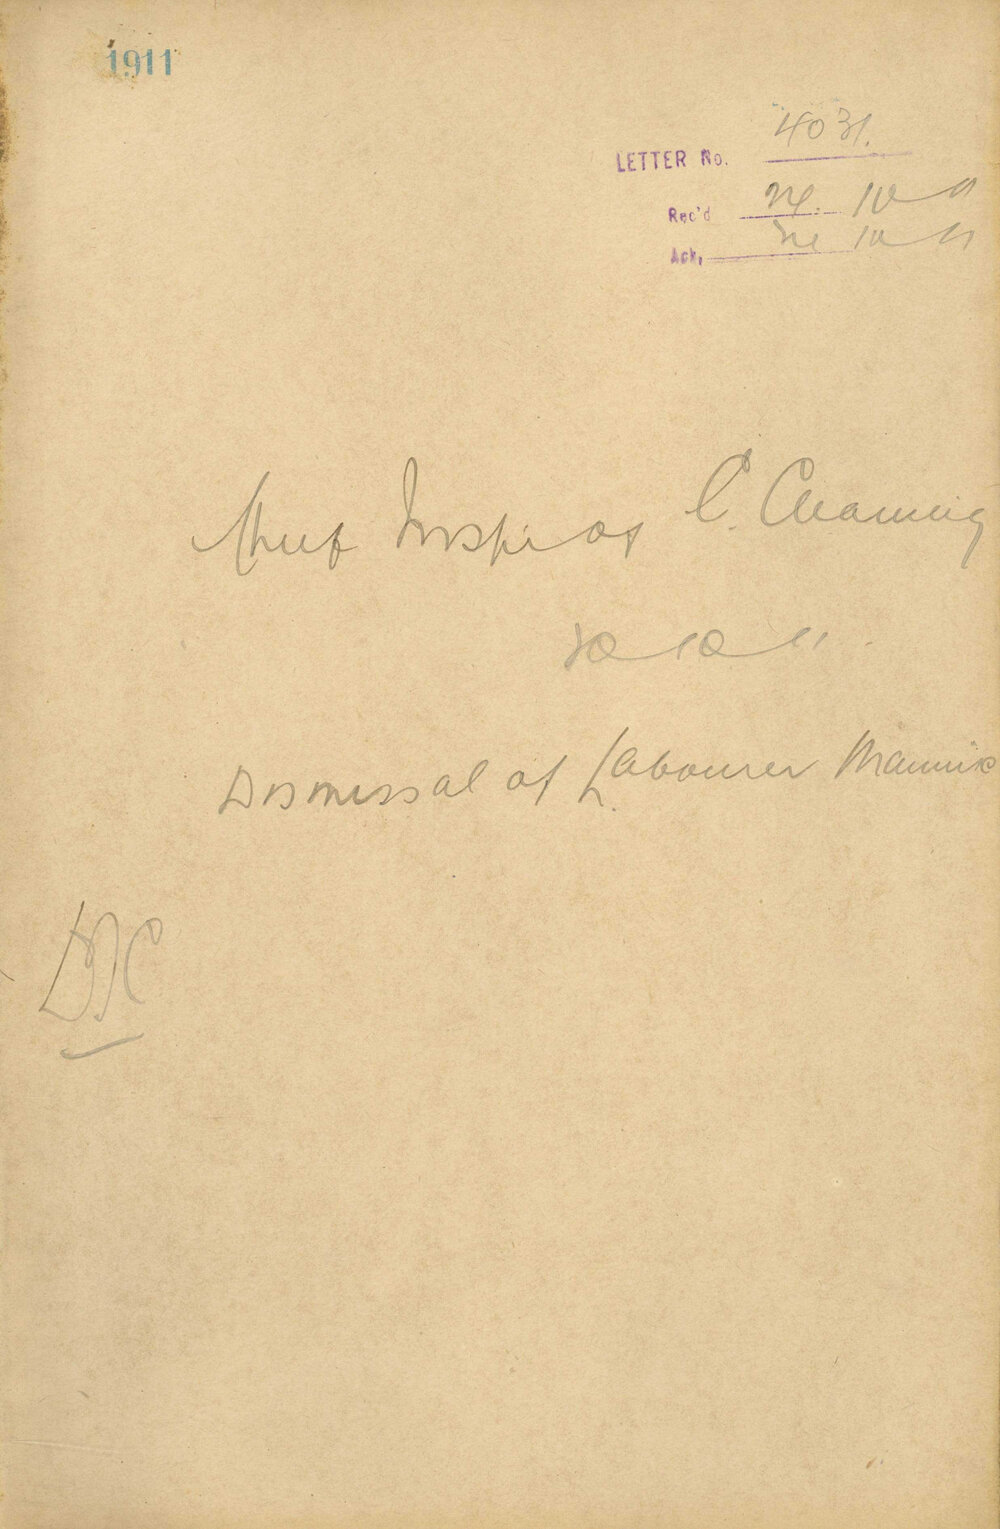 1911
LETTER No. 4031.
Rec'd 24. 10 - 11
Ack, 24 10 - 11
Chief Inspector C. Cleaning
20 - 10 - 11.
Dismissal of Labourer Mannix